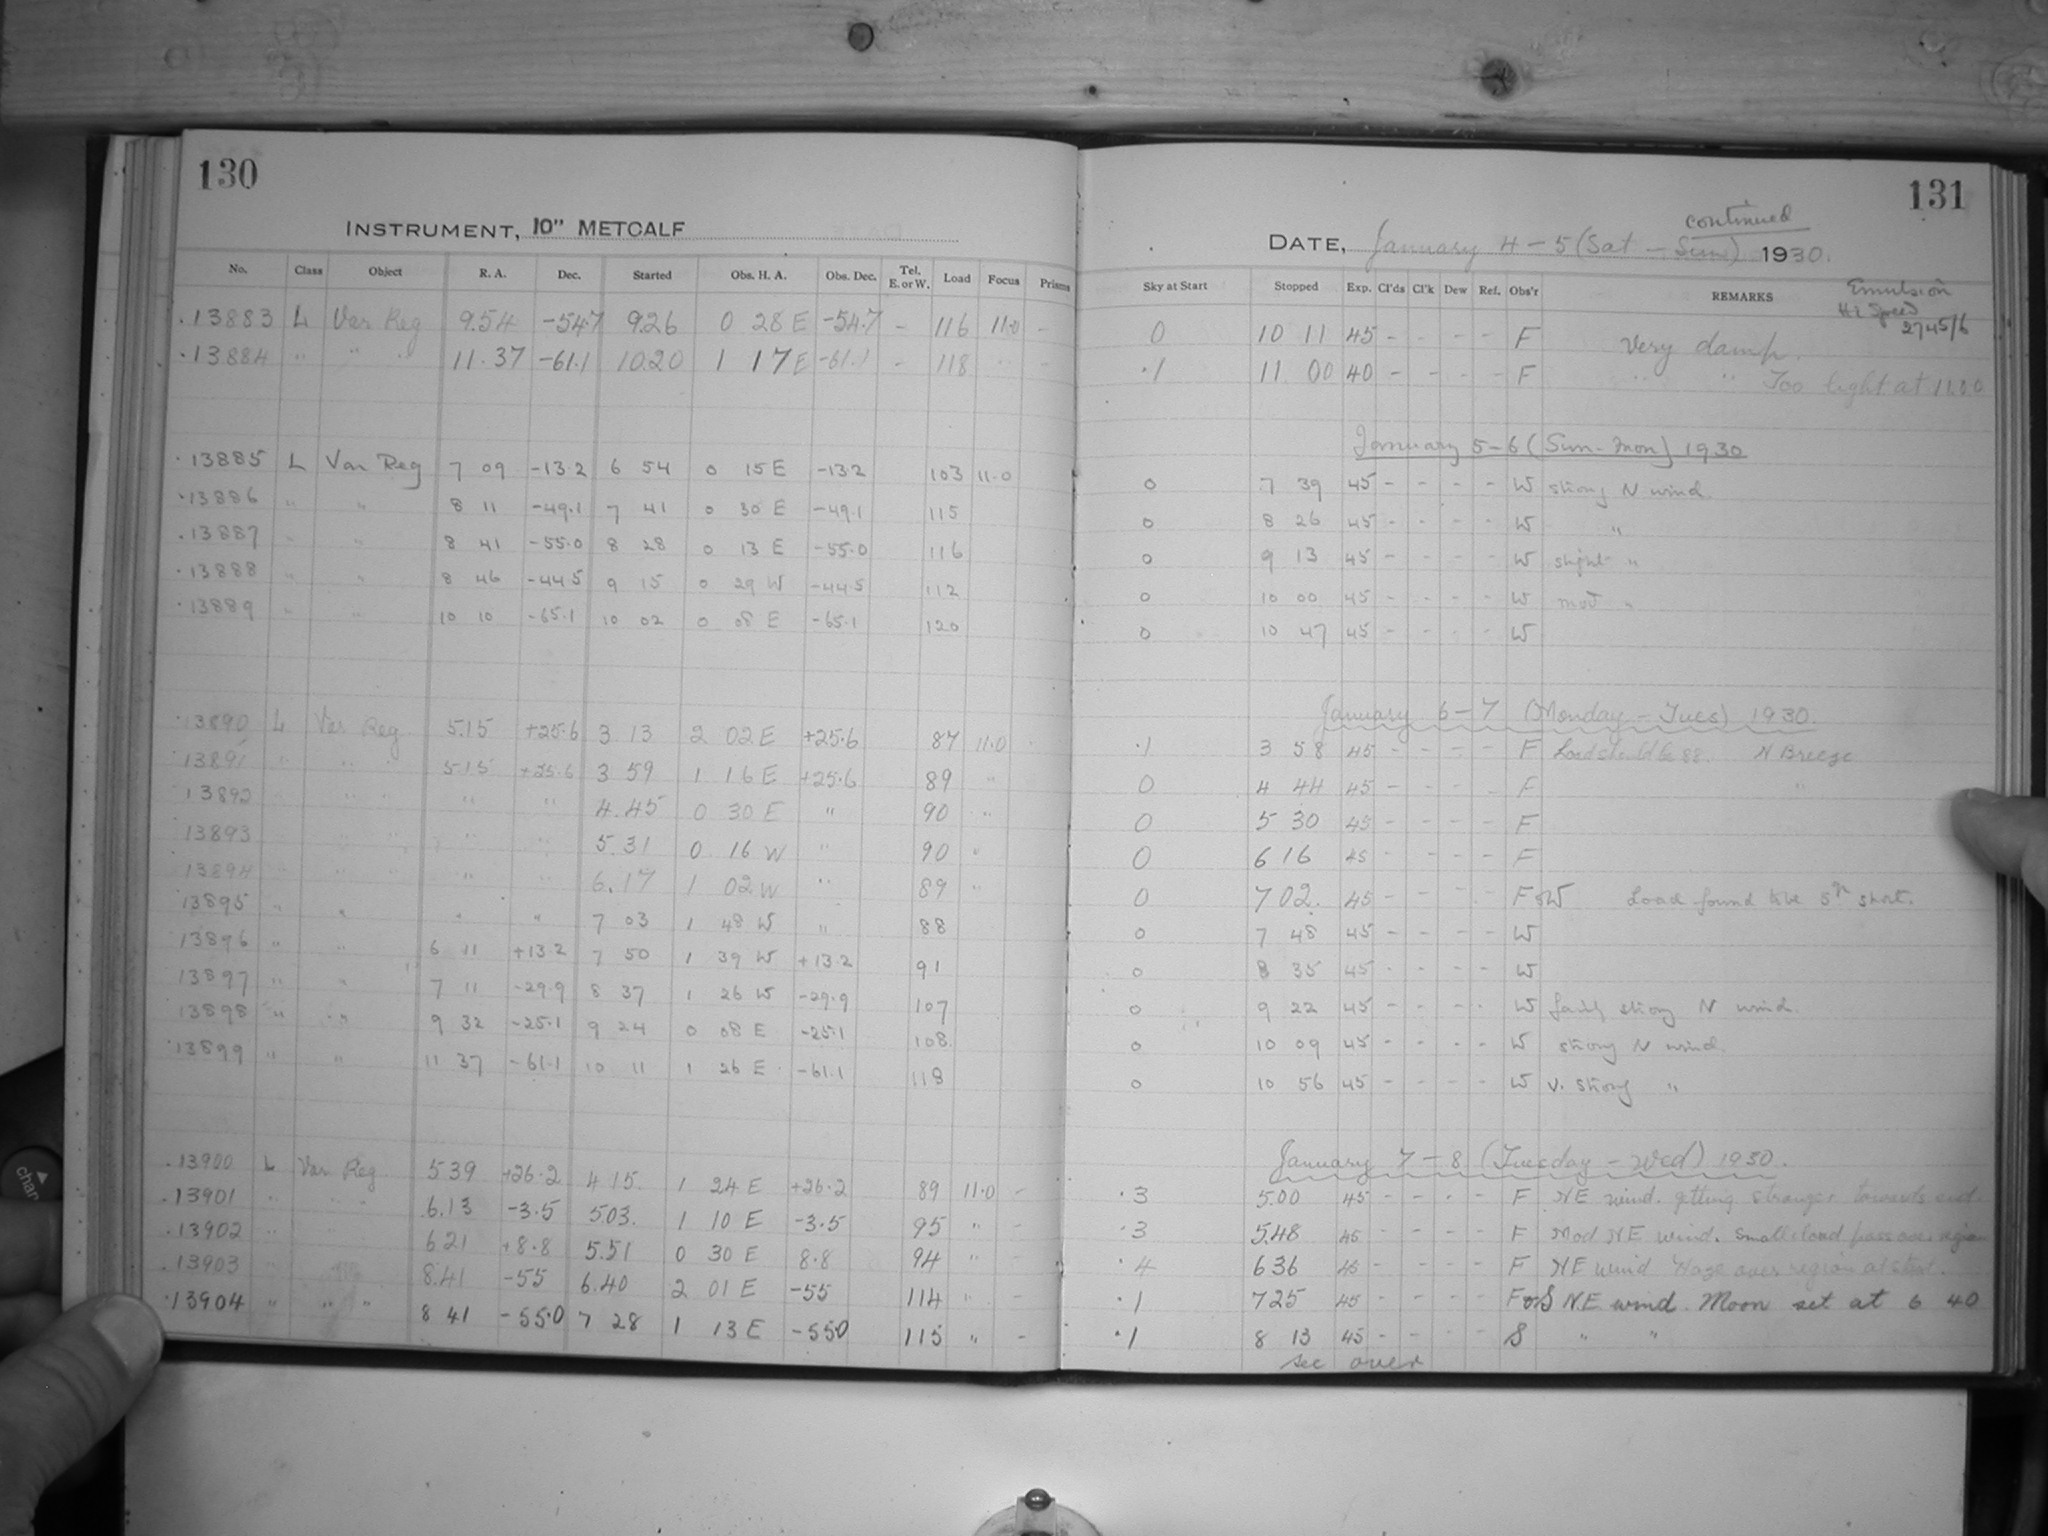 130
INSTRUMENT, 10" METCALF
No. Class Object R. A. Dec. Started Obs. H. A. Obs. Dec. Tel. E. or W. Load Focus Prisms
.13883 L Var Reg 9.54 -54.7 9.26 0 28 E -54.7 - 116 11.0 -
.13884 " " " 11.37 -61.1 10.20 1 17 E -61.1 - 118 " -
.13885 L Var Reg 7 09 -13.2 6 54 0 15 E -13.2 103 11.0
.13886 " " 8 11 -49.1 7 41 0 30 E -49.1 115
.13887 " " 8 41 -55.0 8 28 0 13 E -55.0 116
.13888 " " 8 46 -44.5 9 15 0 29 W -44.5 112
.13889 " " 10 10 -65.1 10 02 0 08 E -65.1 120
.13890 L Var Reg 5.15 +25.6 3 13 2 02 E +25.6 87 11.0
13891 " " " 5.15 +25.6 3 59 1 16 E +25.6 89 "
13892 " " " " 4.45 0 30 E " 90 "
13893 " " " " 5.31 0 16 W " 90 "
13894 " " " " 6.17 1 02 W " 89 "
13895 " " " " 7 03 1 48 W " 88
13896 " " 6 11 +13.2 7 50 1 39 W +13.2 91
13897 " " 7 11 -29.9 8 37 1 26 W -29.9 107
13898 " " 9 32 -25.1 9 24 0 08 E -25.1 108
.13899 " " 11 37 -61.1 10 11 1 26 E -61.1 118
.13900 L Var Reg 5 39 +26.2 4 15 1 24 E +26.2 89 11.0 -
.13901 " " " 6.13 -3.5 5.03. 1 10 E -3.5 95 " -
.13902 " 6 21 +8.8 5.51 0 30 E 8.8 94 " -
.13903 " 8.41 -55 6.40 2 01 E -55 114 " -
.13904 " " " 8 41 -55.0 7 28 1 13 E -55.0 115 " -
131
continued
DATE, January 4-5 (Sat - Sun) 1930.
Sky at Start Stopped Exp. Cl'ds Cl'k Dew Ref. Obs'r REMARKS Emulsion
Hi Speed
2745/6
0 10 11 45 - - - - F Very damp.
.1 11 00 40 - - - - F " " Too light at 11.00
January 5-6 (Sun-Mon) 1930
0 7 39 45 - - - - W strong N wind.
0 8 26 45 - - - - W "
0 9 13 45 - - - - W slight "
0 10 00 45 - - - - W mod "
0 10 47 45 - - - - W
January 6-7 (Monday - Tues) 1930.
.1 3 58 45 - - - - F Load should be 88. N Breeze
0 4 44 45 - - - - F "
0 5 30 45 - - - - F
0 6 16 45 - - - - F
0 7 02. 45 - - - - F & W Load found to be 5m short.
0 7 48 45 - - - - W
0 8 35 45 - - - - W
0 9 22 45 - - - - W fairly strong N wind.
0 10 09 45 - - - - W strong N wind
0 10 56 45 - - - - W v. strong "
January 7-8 (Tuesday - Wed) 1930.
.3 5.00 45 - - - - F NE wind. getting stronger towards end.
.3 5.48 45 - - - - F Mod NE wind. Small cloud pass over region
.4 6 36 45 - - - - F NE wind Haze over region at start.
.1 7 25 45 - - - - F & S N.E. wind. Moon set at 6 40
.1 8 13 45 - - - - S " "
see over
chan